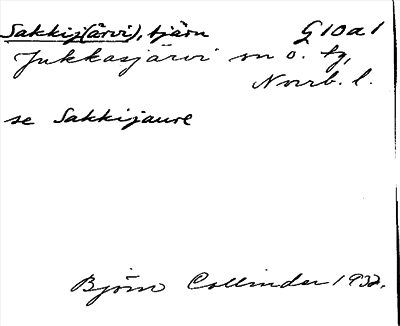 Sakkij(ärvi), tjärn G10a1
Jukkasjärvi sn o. tg,
Norrb. l.
se Sakkijaure
Björn Collinder 1932.